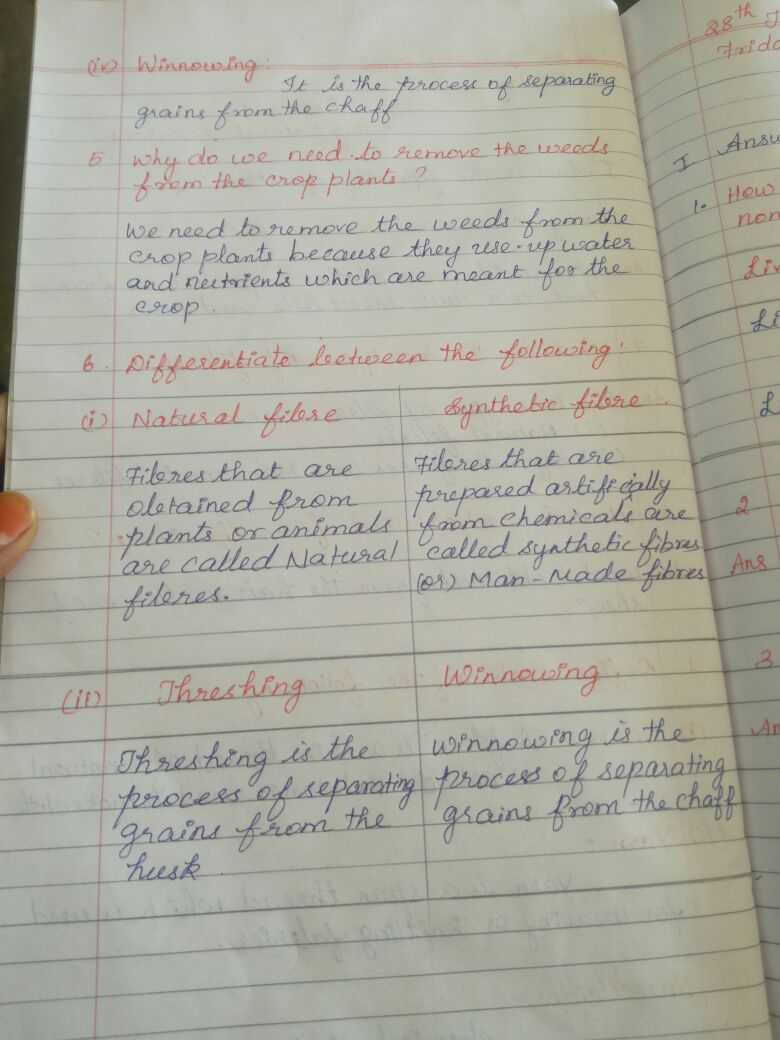 (iv) Winnowing:
It is the process of separating
grains from the chaff
5 Why do we need to remove the weeds
from the crop plants ?
We need to remove the weeds from the
crop plants because they use-up water
and nutrients which are meant for the
crop.
6. Differentiate between the following:
(i) Natural fibre
Fibres that are
obtained from
plants or animals
are called Natural
fibres.
Synthetic fibre
Fibres that are
prepared artificially
from chemicals are
called synthetic fibres
(or) Man-Made fibres
(ii) Threshing
Threshing is the
process of separating
grains from the
husk.
Winnowing
Winnowing is the
process of separating
grains from the chaff
28th
I
1. How
2
Ans
3